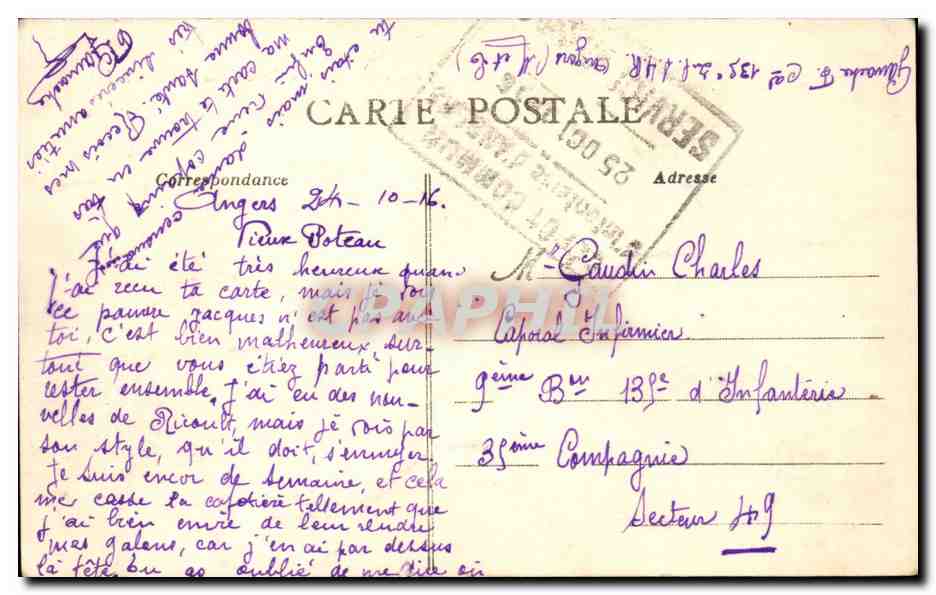 CARTE POSTALE
Correspondance
Adresse
Angers 24-10-16.
Vieux Poteau
J'ai été très heureux quand
j'ai recu ta carte, mais je vois
ce pauvre Jacques n'est pas avec
toi, c'est bien malheureux sur-
tout que vous étiez parti pour
rester ensemble, J'ai eu des nou-
velles de Ricoult, mais je vois par
son style, qu'il doit, s'ennuyer.
Je suis encor de semaine, et cela
me casse la cafetière tellement que
j'ai bien envie de leur rendre
mes galons, car j'en ai par dessus
la tête. Tu as oublié de me dire où
tu étais mais je
ma carte te trouve en très
bonne santé. Recois mes
sincères amitiés
Gamache
Mr Gaudin Charles
Caporal Infirmier
9ème Bon 135e d'Infanterie
35ème Compagnie
Secteur 49
Gamache F. cal 135e Angers (M et L)
25 OCT 16
SERVICE
CAPHIL